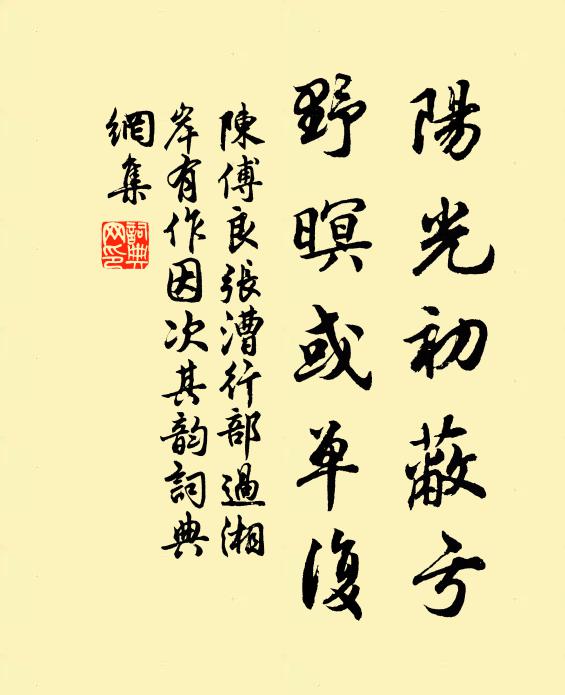 陽光初蔽亏
野暝或单復
陳傅良張漕行部過湘
岸有作因次其韵詞典
網集
詞典
网印